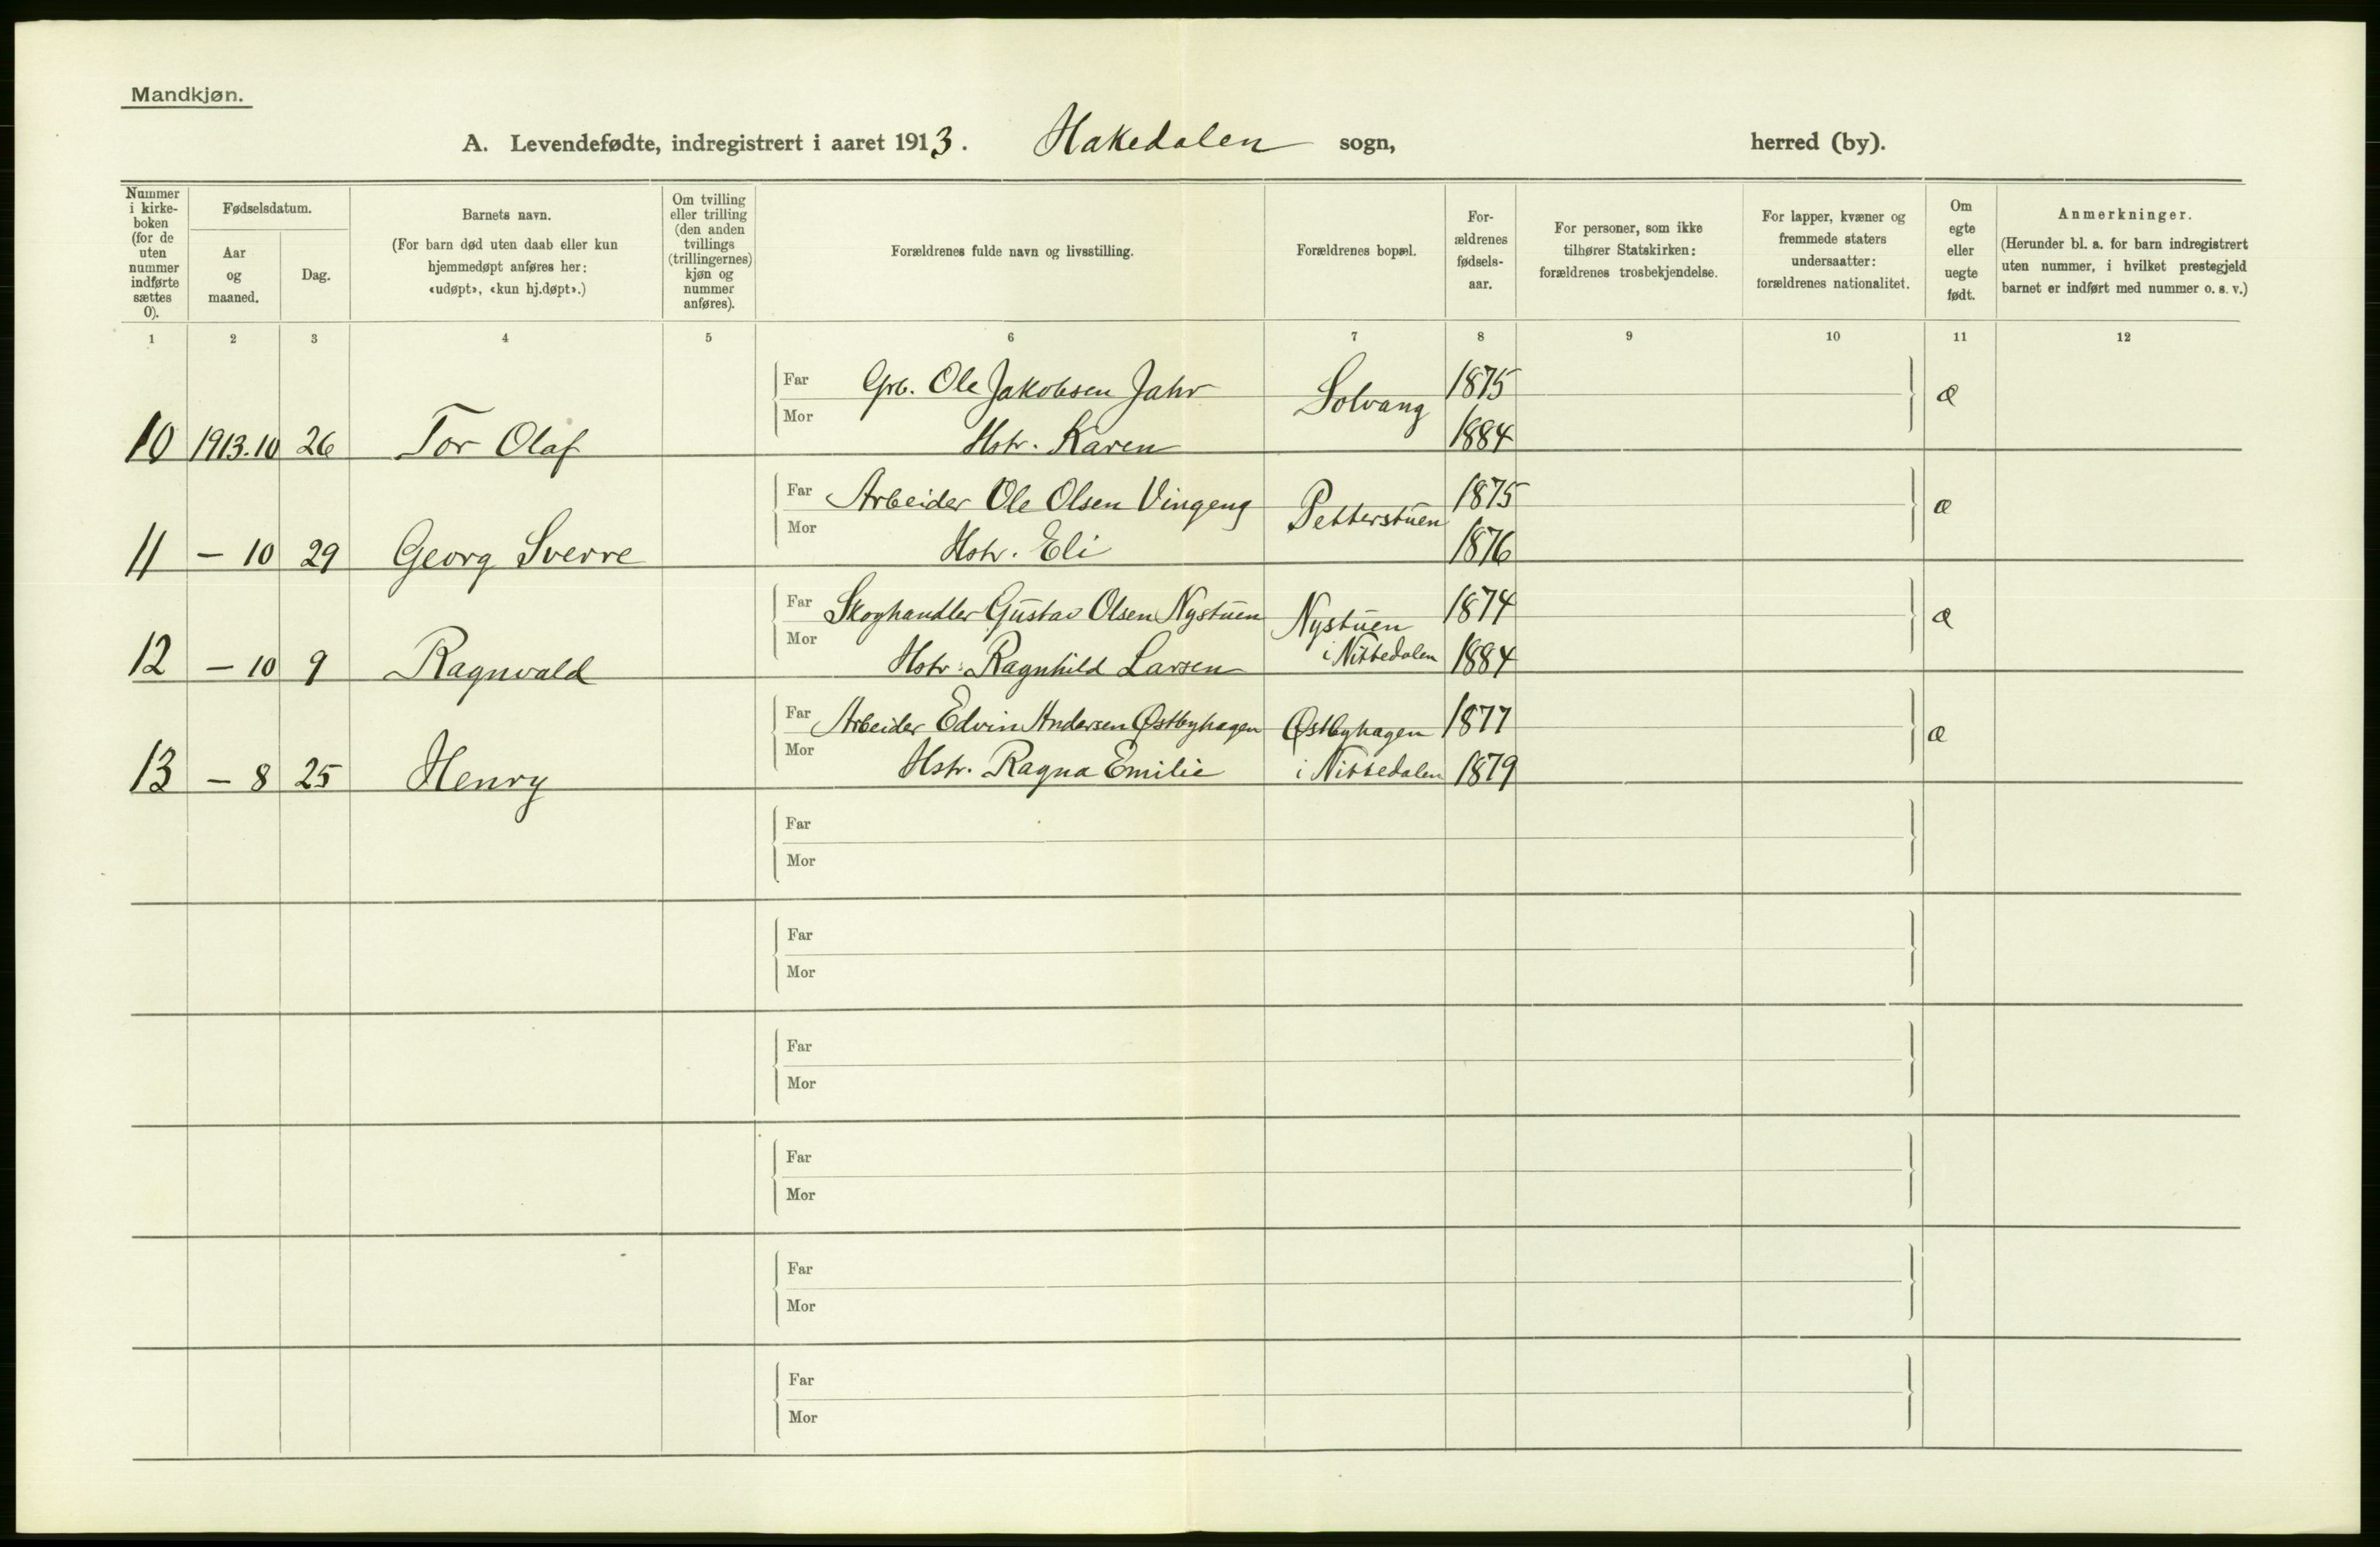 Mandkjøn.
A. Levendefødte, indregistrert i aaret 1913. Hakedalen sogn, herred (by).
Nummer i kirke-boken (for de uten nummer indførte sættes 0).
Fødselsdatum.
Aar og maaned.
Dag.
Barnets navn.
(For barn død uten daab eller kun hjemmedøpt anføres her: «udøpt», «kun hj.døpt».)
Om tvilling eller trilling (den anden tvillings (trillingernes) kjøn og nummer anføres).
Forældrenes fulde navn og livsstilling.
Forældrenes bopæl.
For-ældrenes fødsels-aar.
For personer, som ikke tilhører Statskirken: forældrenes trosbekjendelse.
For lapper, kvæner og fremmede staters undersaatter: forældrenes nationalitet.
Om egte eller uegte født.
Anmerkninger.
(Herunder bl. a. for barn indregistrert uten nummer, i hvilket prestegjeld barnet er indført med nummer o. s. v.)
1 2 3 4 5 6 7 8 9 10 11 12
Far Grb. Ole Jakobsen Jahr Solvang 1875 æ
10 1913.10 26 Tor Olaf Mor Hstr. Karen 1884
Far Arbeider Ole Olsen Vingeng Petterstuen 1875 æ
11 – 10 29 Georg Sverre Mor Hstr. Eli 1876
Far Skoghandler Gustav Olsen Nystuen Nystuen 1874 æ
12 – 10 9 Ragnvald Mor Hstr. Ragnhild Larsen i Nittedalen 1884
Far Arbeider Edvin Andersen Østbyhagen Østbyhagen 1877 æ
13 – 8 25 Henry Mor Hstr. Ragna Emilie i Nittedalen 1879
Far
Mor
Far
Mor
Far
Mor
Far
Mor
Far
Mor
Far
Mor